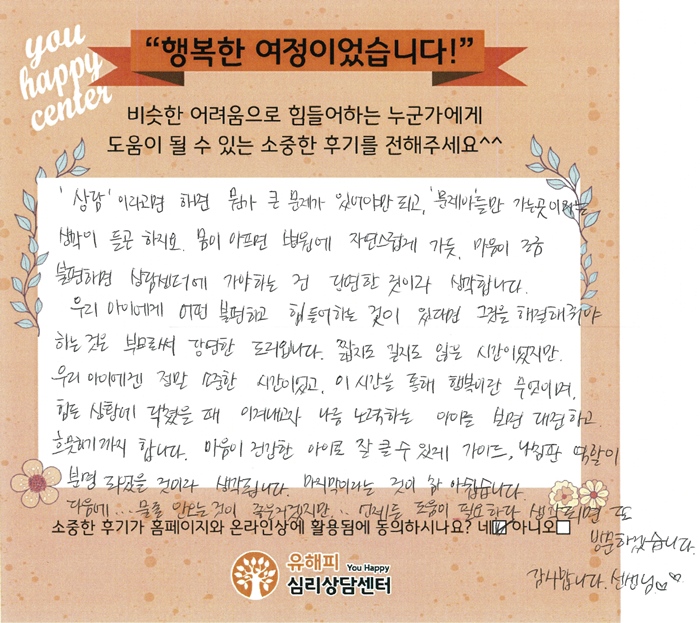 you
happy
center
“행복한 여정이었습니다!”
비슷한 어려움으로 힘들어하는 누군가에게
도움이 될 수 있는 소중한 후기를 전해주세요^^
'상담' 이라고하면 해면 뭔가 큰 문제가 있어야만 되고, '문제아'들만 가는곳이라는
생각이 들곤 하지요. 몸이 아프면 병원에 자연스럽게 가듯, 마음이 조금
불편하면 상담센터에 가야하는 건 당연한 것이라 생각합니다.
우리 아이에게 어떤 불편하고 힘들어하는 것이 있다면 그것을 해결해줘야
하는것은 부모로써 당연한 도리입니다. 짧지도 길지도 않은 시간이었지만,
우리 아이에겐 정말 소중한 시간이었고, 이 시간을 통해 행복이란 무엇이며,
힘든 상황에 닥쳤을 때 이겨내고자 나름 노력하는 아이를 보면 대견하고
흐뭇하기까지 합니다. 마음이 건강한 아이로 잘 클 수 있게 가이드, 나침판 역할이
분명 되었을 것이라 생각됩니다. 마지막이라는 것이 참 아쉽습니다.
다음에... 또를 있는것이 국부적겠지만.. 언제든 도움이 필요하다 생각되면 또
방문하겠습니다.
소중한 후기가 홈페이지와 온라인상에 활용됨에 동의하시나요? 네☑ 아니오☐
감사합니다. 선생님♡♡
유해피 You Happy
심리상담센터